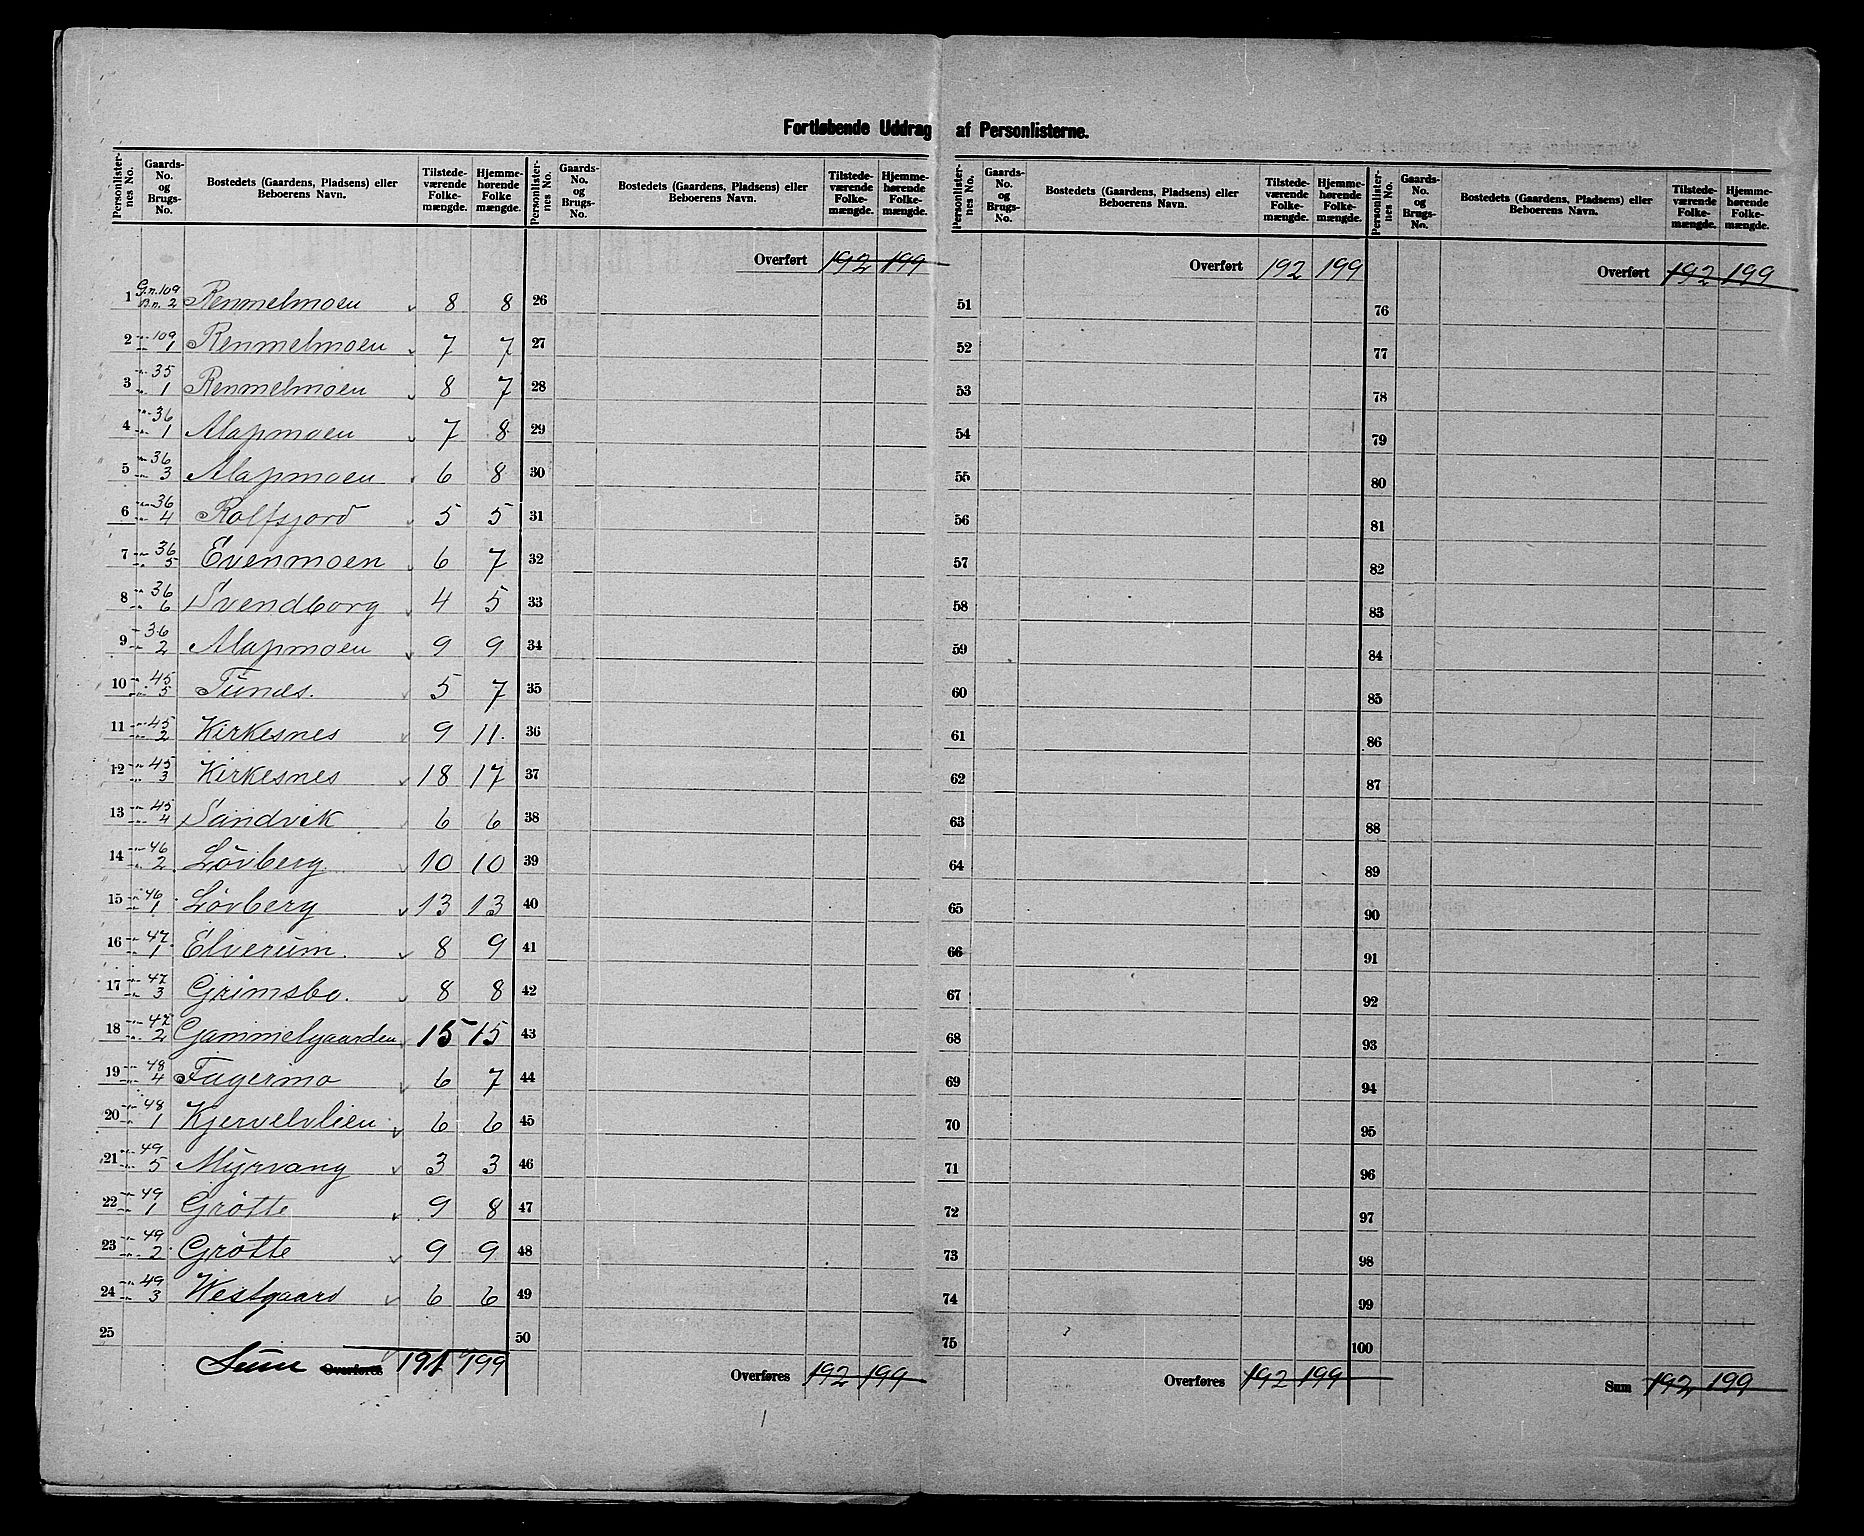 Fortløbende Uddrag af Personlisterne.
Personlisternes No. | Gaards-No. og Brugs-No. | Bostedets (Gaardens, Pladsens) eller Beboerens Navn. | Tilstedeværende Folkemængde. | Hjemmehørende Folke mængde. | Personlisternes No. | Gaards-No. og Brugs-No. | Bostedets (Gaardens, Pladsens) eller Beboerens Navn. | Tilstedeværende Folkemængde. | Hjemmehørende Folkemængde. | Personlisternes No. | Gaards-No. og Brugs-No. | Bostedets (Gaardens, Pladsens) eller Beboerens Navn. | Tilstedeværende Folkemængde. | Hjemmehørende Folkemængde. | Personlisternes No. | Gaards-No. og Brugs-No. | Bostedets (Gaardens, Pladsens) eller Beboerens Navn. | Tilstedeværende Folkemængde. | Hjemmehørende Folkemængde.
Overført 192 199 Overført 192 199 Overført 192 199
1 G.n. 109 B.n. 2 Remmelmoen 8 8 26 51 76
2 " 109 " 1 Remmelmoen 7 7 27 52 77
3 " 35 " 1 Remmelmoen 8 7 28 53 78
4 " 36 " 1 Alapmoen 7 8 29 54 79
5 " 36 " 3 Alapmoen 6 8 30 55 80
6 " 36 " 4 Rolfsjord 5 5 31 56 81
7 " 36 " 5 Evenmoen 6 7 32 57 82
8 " 36 " 6 Svendborg 4 5 33 58 83
9 " 36 " 2 Alapmoen 9 9 34 59 84
10 " 45 " 5 Tunds. 5 7 35 60 85
11 " 45 " 2 Kirkesnes 9 11 36 61 86
12 " 45 " 3 Kirkesnes 18 17 37 62 87
13 " 45 " 4 Sandvik 6 6 38 63 88
14 " 46 " 2 Løvberg 10 10 39 64 89
15 " 46 " 1 Løvberg 13 13 40 65 90
16 " 47 " 1 Elverum. 8 9 41 66 91
17 " 47 " 3 Grimsbo. 8 8 42 67 92
18 " 47 " 2 Gammelgaarden 15 15 43 68 93
19 " 48 " 4 Fagermo 6 7 44 69 94
20 " 48 " 1 Kjervelvlien 6 6 45 70 95
21 " 49 " 5 Myrvang 3 3 46 71 96
22 " 49 " 1 Grøtte 9 8 47 72 97
23 " 49 " 2 Grøtte 9 9 48 73 98
24 " 49 " 3 Vestgaard 6 6 49 74 99
25 50 75 100
Sum Overføres 191 199 Overføres 192 199 Overføres 192 199 Sum 192 199